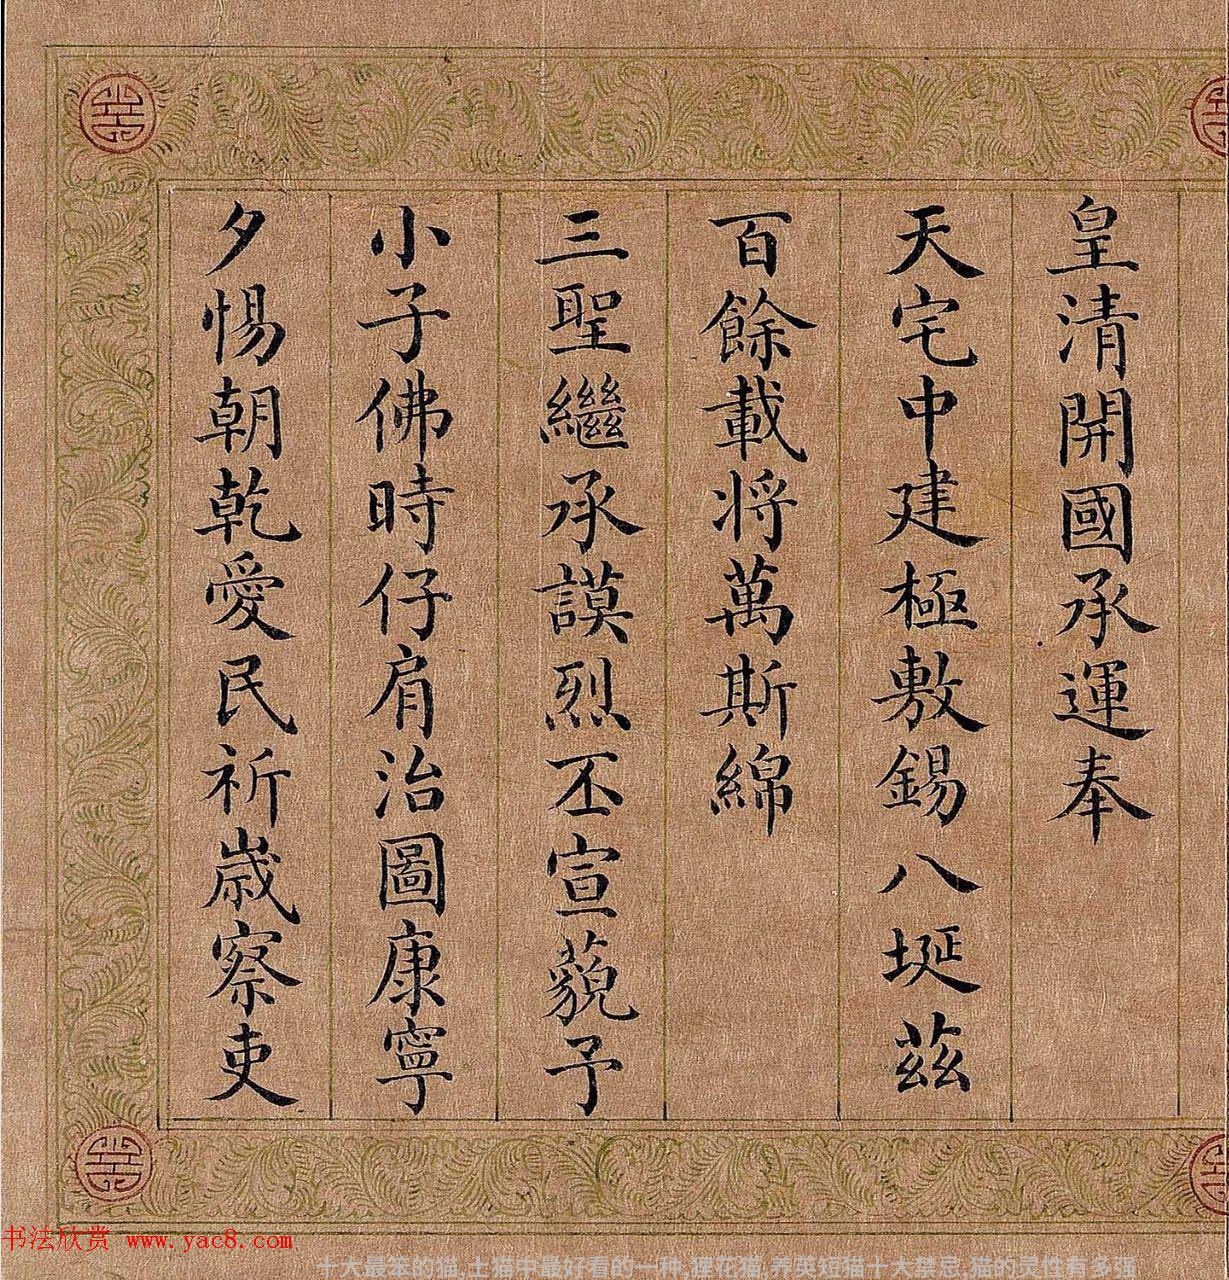 皇清開國承運奉
天宅中建極敷錫八埏茲
百餘載將萬斯綿
三聖繼承謨烈丕宣藐予
小子佛時仔肩治圖康寧
夕惕朝乾愛民祈歲察吏
书法欣赏 www.yac8.com
十大最笨的猫,土猫中最好看的一种,狸花猫,养英短猫十大禁忌,猫的灵性有多强